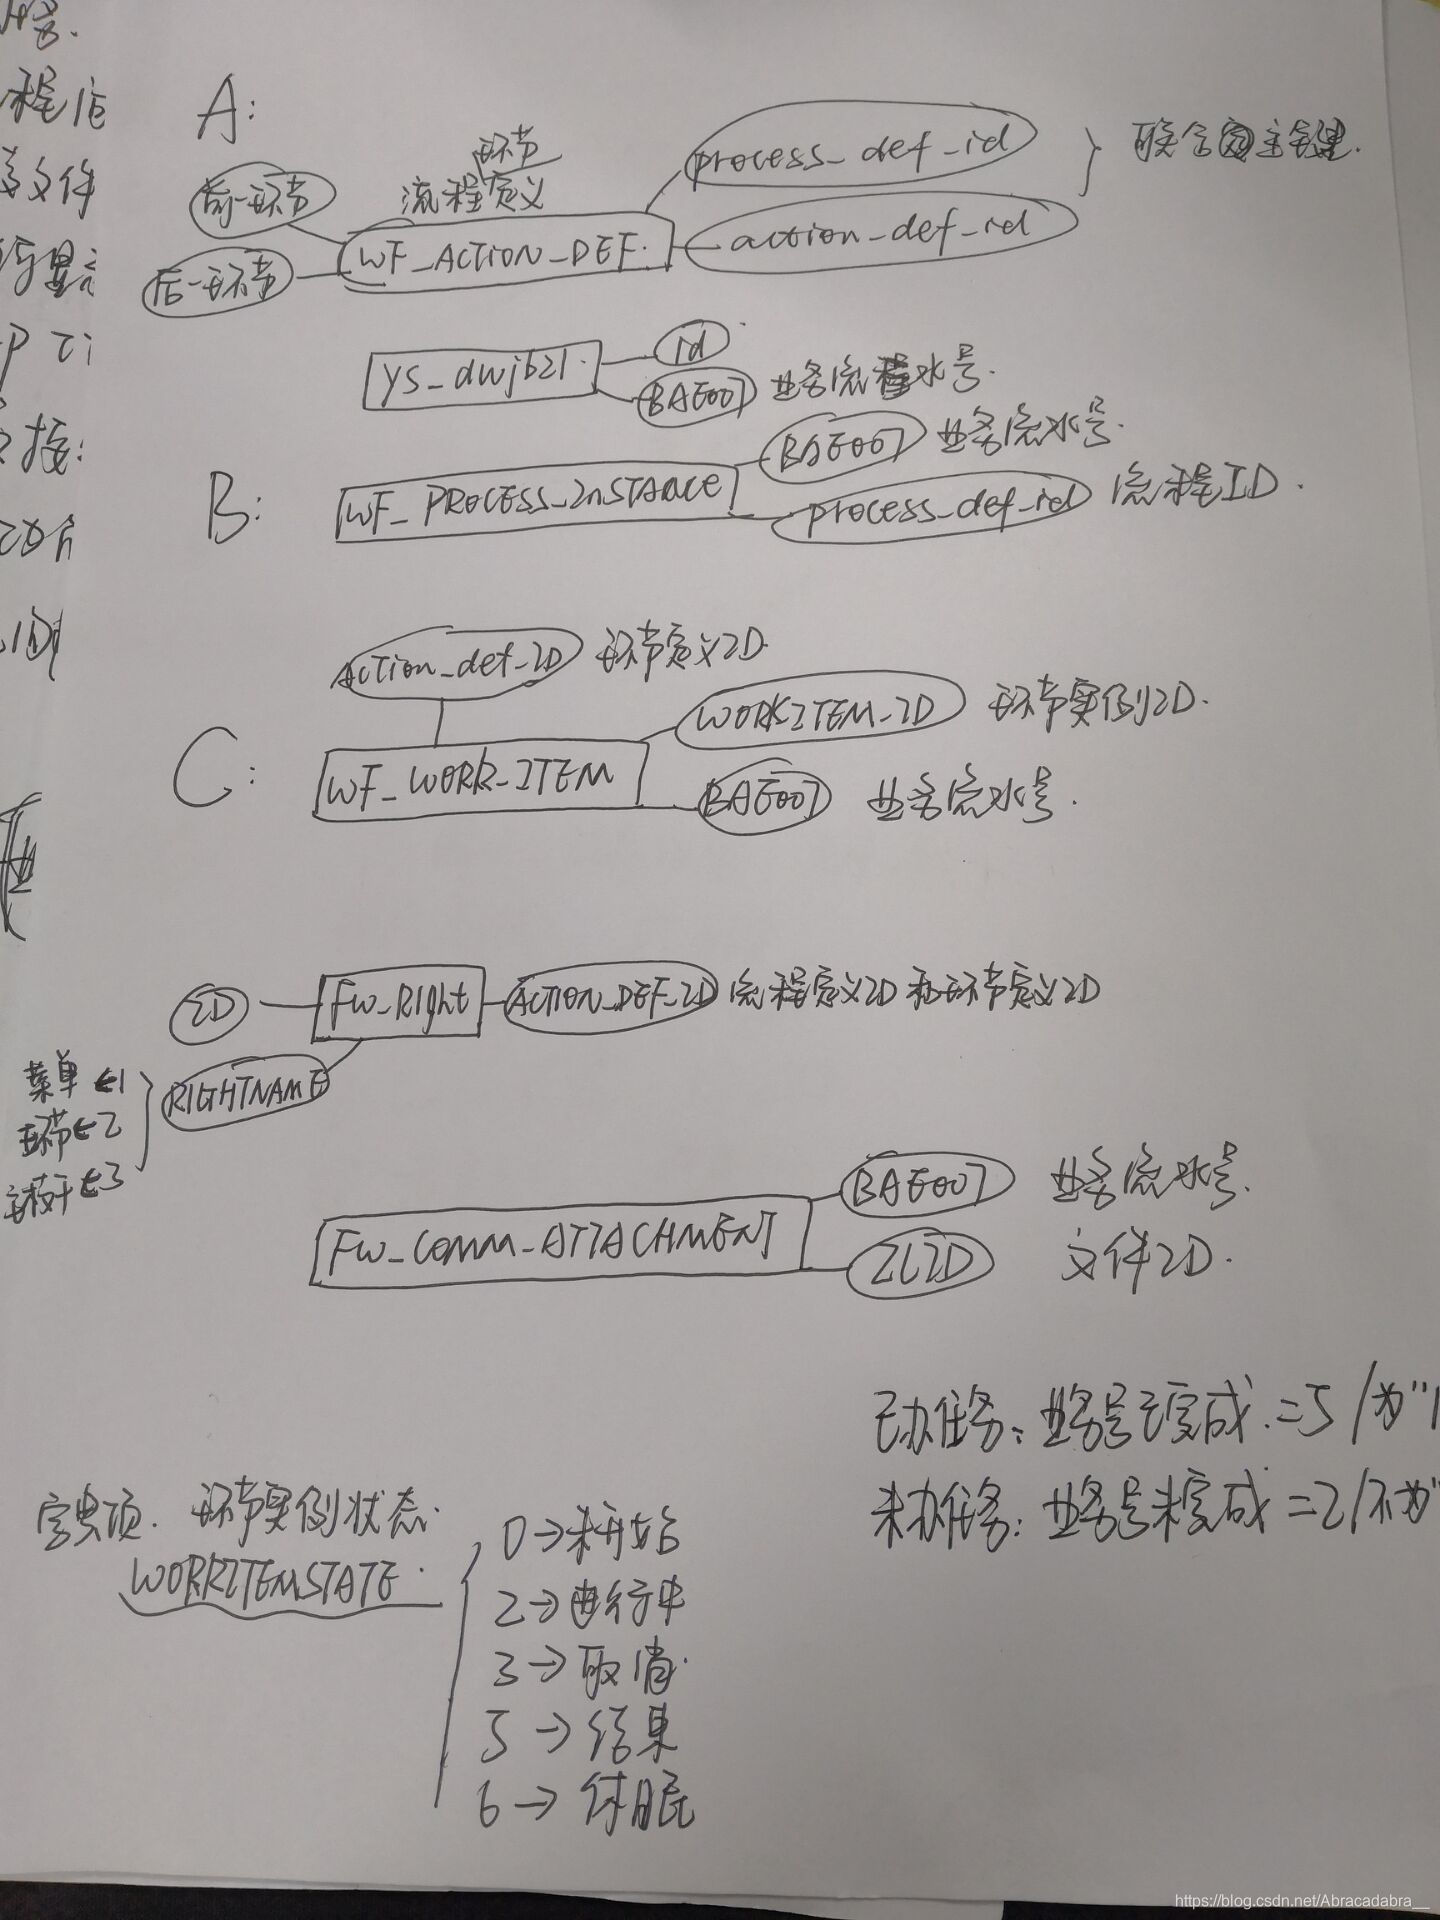 A:
环节
流程定义
前一环节
后一环节
WF_ACTION_DEF.
process_def_id
action_def_id
联合主键.
ys_dwjbzl.
id
BAE007 业务流程水号.
B:
WF_PROCESS_INSTANCE
BAE007 业务流水号.
process_def_id 流程ID.
ACTion_def_ID 环节定义ID.
C:
WF_WORK_ITEM
WORKITEM_ID 环节实例ID.
BAE007 业务流水号.
ID
FW_Right
ACTION_DEF_ID 流程定义ID和环节定义ID
RIGHTNAME
菜单←1
环节←2
←3
FW_COMM_ATTACHMENT
BAE007 业务流水号.
ZLID 文件ID.
已办任务: 业务号已完成.=5/为"1
未办任务: 业务号未完成=2/不为"
字典项. 环节实例状态.
WORKITEMSTATE.
0→未开始
2→进行中
3→取消.
5→结束
6→休眠
程信
文件
接:
https://blog.csdn.net/Abracadabra__